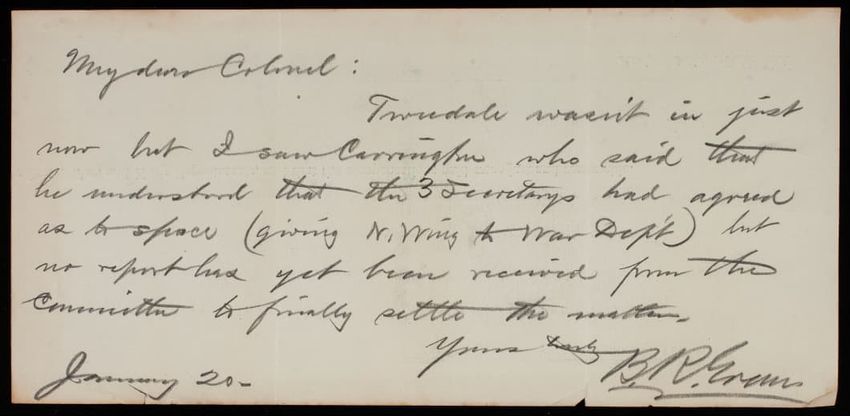 My dear Colonel:
Tweedale wasn't in just
now but I saw Carrington who said that
he understood that the 3 Secretarys had agreed
as to space (giving N. Wing to War Dep't) but
no report has yet been received from the
Committee to finally settle the matter.
Yours truly
B. R. Evans
January 20-